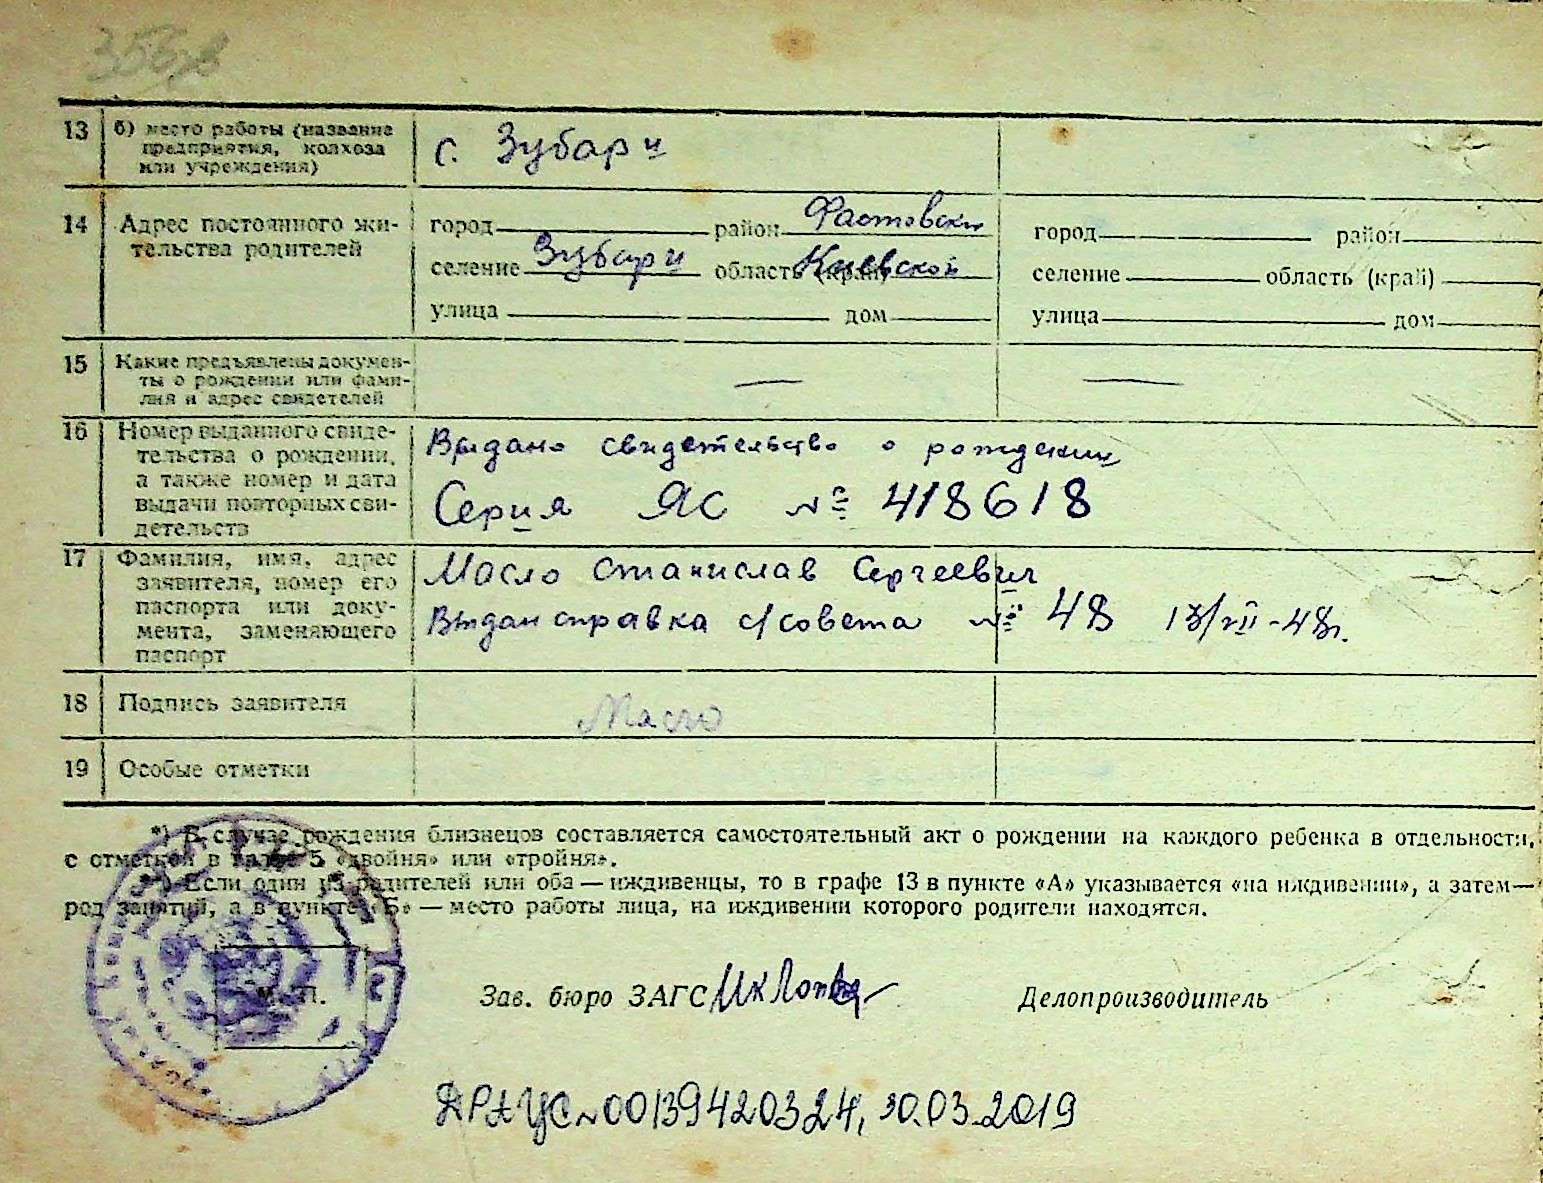 353
13 б) место работы (название
предприятия, колхоза
или учреждения)
с. Зубари
14 Адрес постоянного жи-
тельства родителей
город район Фастовски
селение Зубари область (край) Киевской
улица дом
город район
селение область (край)
улица дом
15 Какие предъявлены докумен-
ты о рождении или фами-
лия и адрес свидетелей
— —
16 Номер выданного свиде-
тельства о рождении,
а также номер и дата
выдачи повторных сви-
детельств
Выдано свидетельство о рождении
Серия ЯС № 418618
17 Фамилия, имя, адрес
заявителя, номер его
паспорта или доку-
мента, заменяющего
паспорт
Масло Станислав Сергеевич
Выдан справка с/совета № 48 13/VII-48г.
18 Подпись заявителя
Масло
19 Особые отметки
*) В случае рождения близнецов составляется самостоятельный акт о рождении на каждого ребенка в отдельности,
с отметкой в графе 5 «двойня» или «тройня».
Если один из родителей или оба — иждивенцы, то в графе 13 в пункте «А» указывается «на иждивении», а затем —
род занятий, а в пункте «Б» — место работы лица, на иждивении которого родители находятся.
М. П.
Зав. бюро ЗАГС
Делопроизводитель
ДРАЦС № 00139420324, 30.03.2019